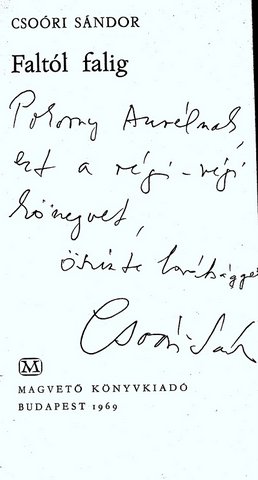 CSOÓRI SÁNDOR
Faltól falig
Pokorny Aurélnak,
ezt a régi-régi
könyvet,
őszinte barátsággal
Csoóri Sán
M
MAGVETŐ KÖNYVKIADÓ
BUDAPEST 1969